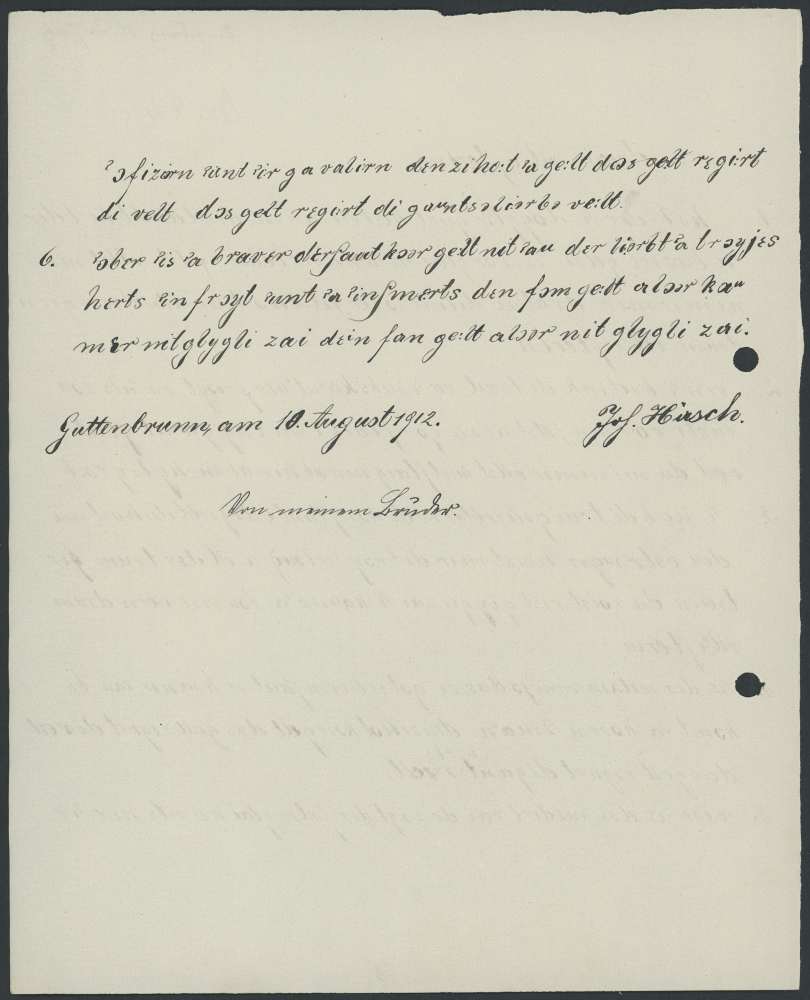 ʾɔfizi:rn ʾunt ʾir gavalirn den zi ho:t ʾa ge:lt dɔ:s gelt regi:rt
di velt dɔs gelt regi:rt di gaunts ve:lt.
6. ʾɔber ʾis ʾa braver der ʃaut kɔɔr gelt nit ʾau der li:ɔbt ʾa trɔyjes
herts ʾin frɔyt ʾunt ʾa ʾin ʃmerts den fɔm ge:lt alɔɔr kau
mɛr nit glygli zai dein fan ge:lt alɔɔr nit glygli zai.
Guttenbrunn, am 10. August 1912. Jos. Hirsch.
Von meinem Bruder.